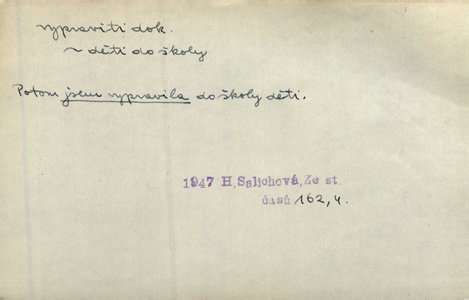 vypraviti dok.
~ děti do školy
Potom jsem vypravila do školy děti.
1947 H. Salichová, Ze st.
časů 162,4.